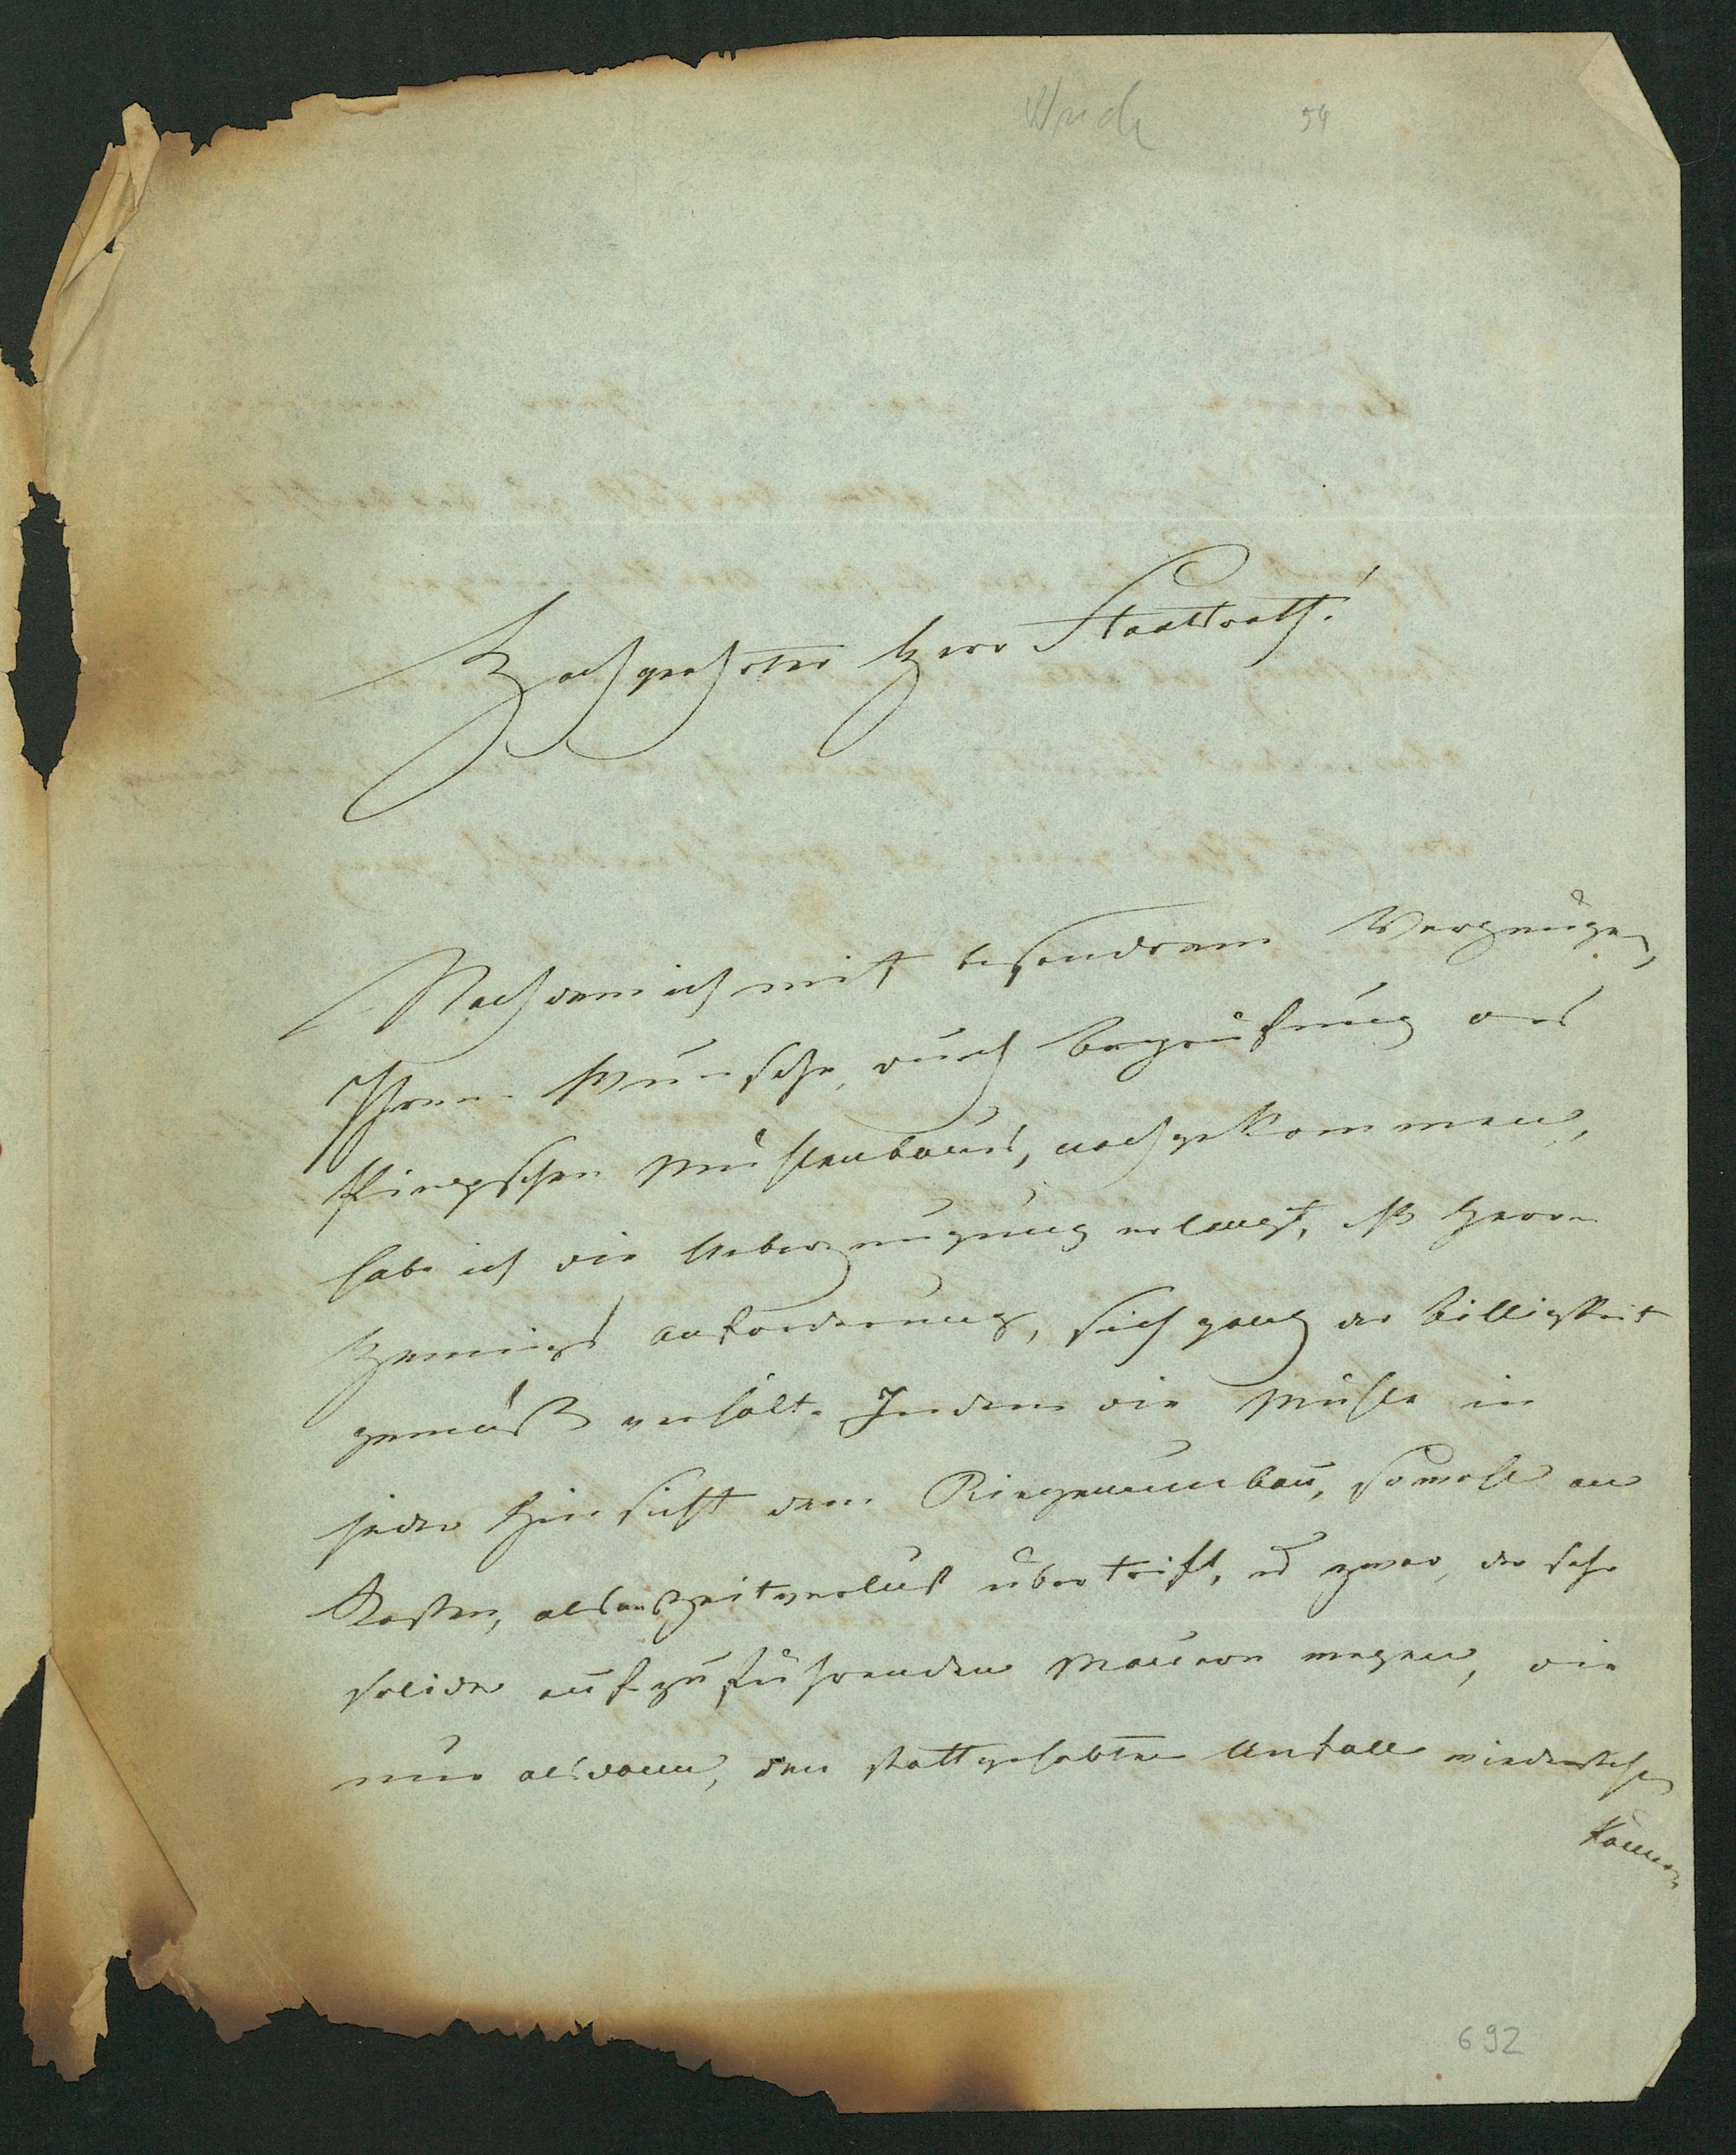 54
Hochgeehrter Herr Staatsrath!
Nachdem ich mit besondrem Vergnügen,
Ihrem Wunsche, durch Begrüfung des
Mühlenbaues, nachgekommen,
habe ich die Ueberzeugung erlangt, daß Herrn
anforderung, sich ganz der billigkeit
gemäß verhält. Indem die Mühle in
jeder Hinsicht dem Riegenumbau, sowohl an
Kosten, als an Zeitverlust übertrift, ud zwar, der sehr
solide aufzuführenden Mauern wegen, die
nur alsdann, den stattgehabten Unfall wiederstehen
können
692